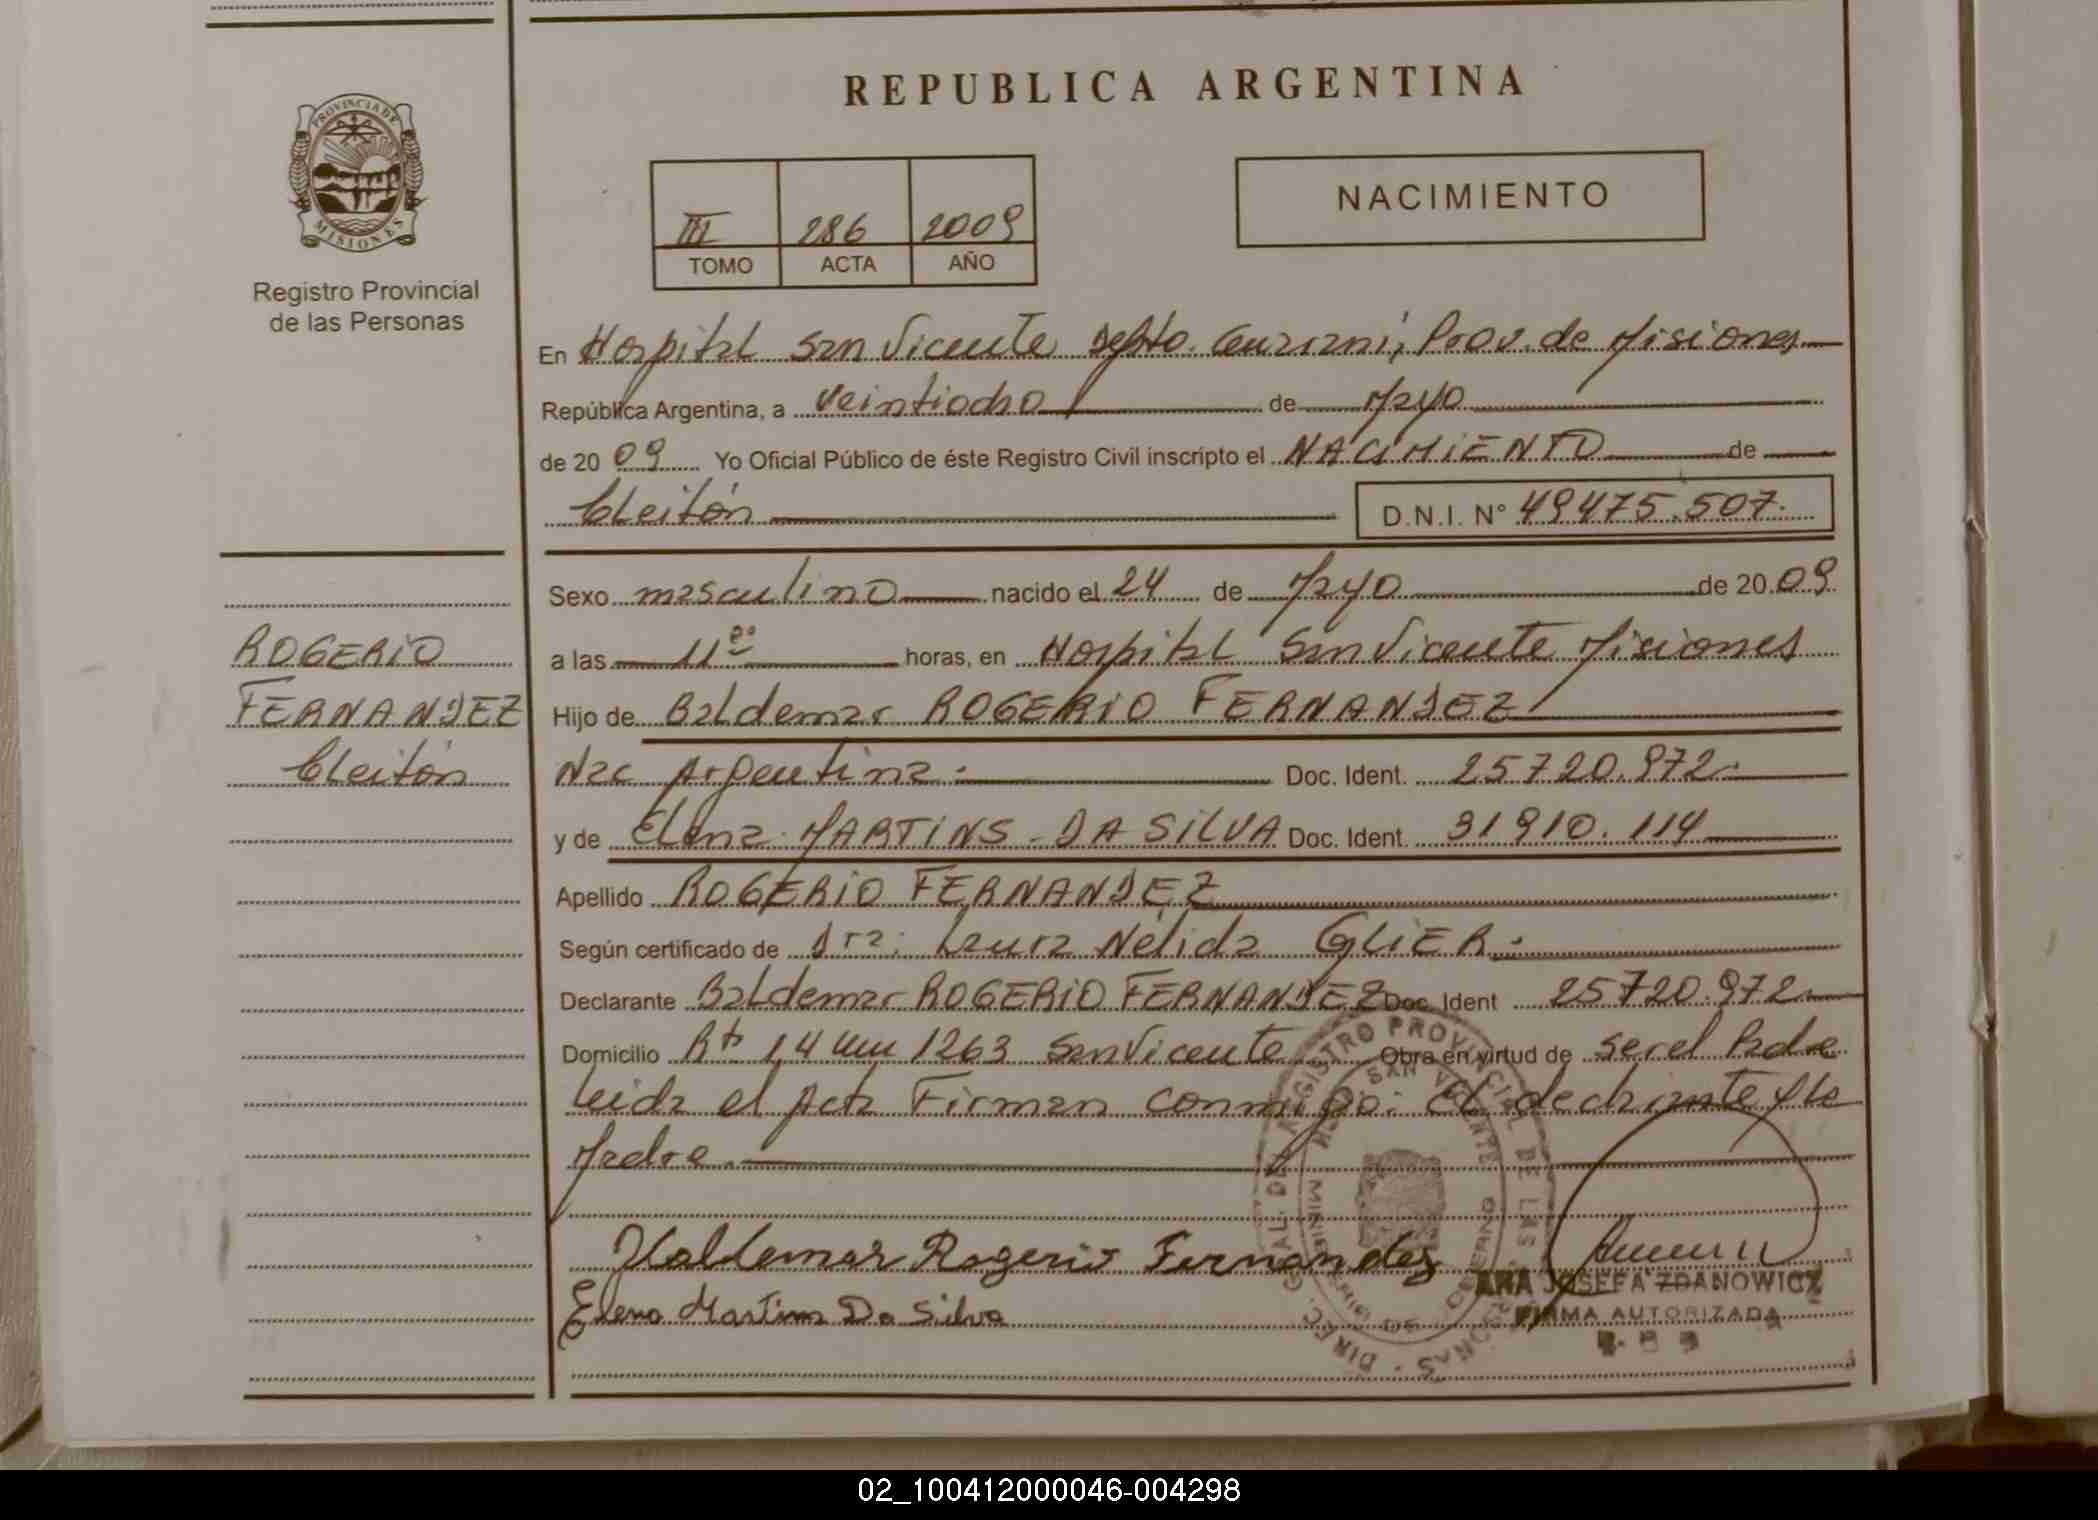 REPUBLICA ARGENTINA
PROVINCIA DE
MISIONES
Registro Provincial
de las Personas
III 286 2009
TOMO ACTA AÑO
NACIMIENTO
En Hospital San Vicente Depto. Guarani, Prov. de Misiones
República Argentina, a veintiocho de Mayo
de 20 09 Yo Oficial Público de éste Registro Civil inscripto el NACIMIENTO de
Cleitón D.N.I. N° 49475.507.
Sexo masculino nacido el 24 de Mayo de 20 09
a las 11 horas, en Hospital San Vicente Misiones
ROGERIO
FERNANDEZ
Cleitón
Hijo de Baldemar ROGERIO FERNANDEZ
Nac Argentina. Doc. Ident. 25720.972.
y de Elena MARTINS - DA SILVA Doc. Ident. 31910.114
Apellido ROGERIO FERNANDEZ
Según certificado de Dra: Laura Nélida GLIER.
Declarante Baldemar ROGERIO FERNANDEZ Doc. Ident 25720.972.
Domicilio Rta 14 km 1263 San Vicente Obra en virtud de ser el Padre
leida el Acta Firman conmigo: El declarante y la
Madre.
Waldemar Rogerio Fernandez
Elena Martins Da Silva
DIREC. GRAL. DEL REGISTRO PROVINCIAL DE LAS PERSONAS
SAN VICENTE
MINISTERIO DE GOBIERNO
ANA JOSEFA ZDANOWICZ
FIRMA AUTORIZADA
02_100412000046-004298